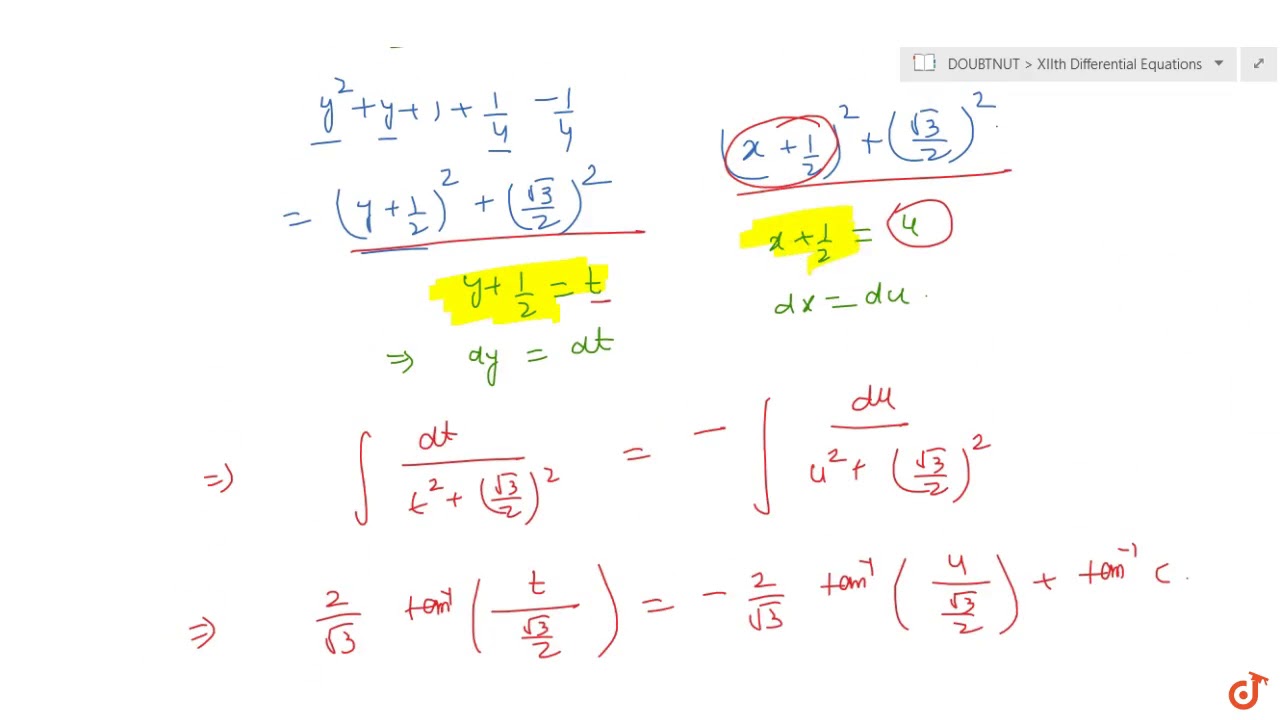 DOUBTNUT > XIIth Differential Equations
y² + y + 1 + 1/4 - 1/4
= (y + 1/2)² + (√3/2)²
y + 1/2 = t
⇒ dy = dt
(x + 1/2)² + (√3/2)²
x + 1/2 = u
dx = du
⇒ ∫ dt/(t² + (√3/2)²) = - ∫ du/(u² + (√3/2)²)
⇒ 2/√3 tan⁻¹(t/(√3/2)) = - 2/√3 tan⁻¹(u/(√3/2)) + tan⁻¹ C